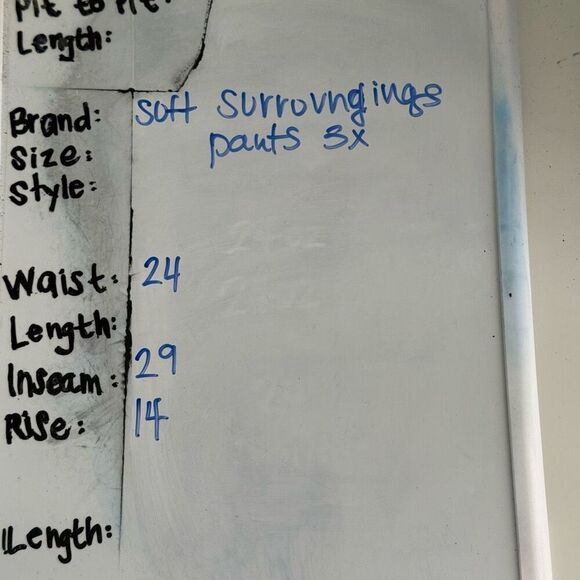 Pit to Pit:
Length:
Brand: Soft Surroungings
Size: pants 3x
Style:
Waist: 24
Length:
Inseam: 29
Rise: 14
Length: